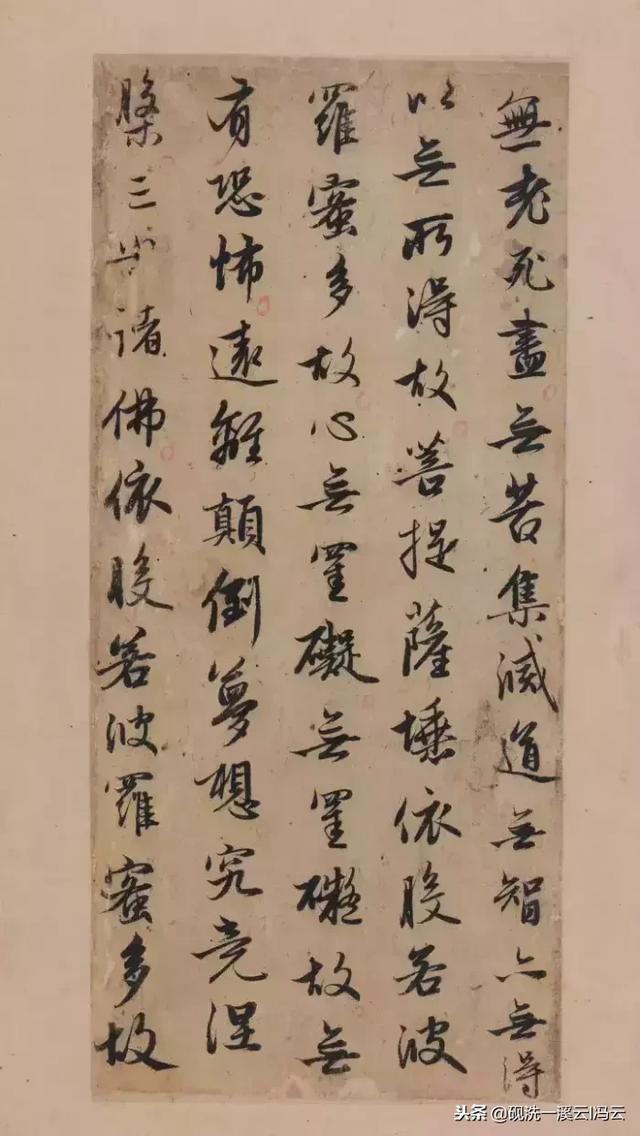 無老死盡無苦集滅道無智亦無得
以無所得故菩提薩埵依般若波
羅蜜多故心無罣礙無罣礙故無
有恐怖遠離顛倒夢想究竟涅
槃三世諸佛依般若波羅蜜多故
头条@砚洗一溪云I冯云